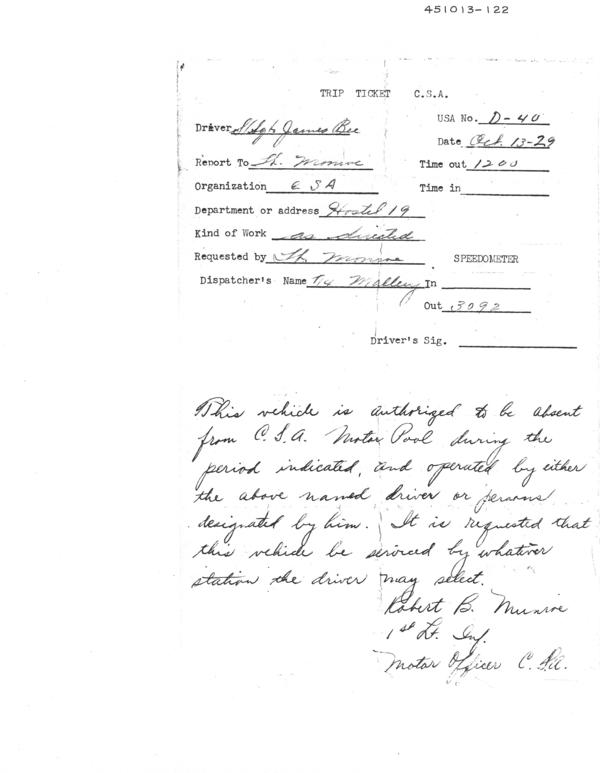 451013-122
TRIP TICKET C.S.A.
USA No. D-40
Driver S/Sgt James Bee
Date Oct. 13-29
Report To Lt. Monroe
Time out 1200
Organization C S A
Time in
Department or address Hostel 19
Kind of Work as directed
Requested by Lt Monroe
SPEEDOMETER
Dispatcher's Name T/4 Mallery In
Out 3092
Driver's Sig.
This vehicle is authorized to be absent
from C.S.A. Motor Pool during the
period indicated, and operated by either
the above named driver or persons
designated by him. It is requested that
this vehicle be serviced by whatever
station the driver may select.
Robert B. Munroe
1st Lt. Inf.
Motor Officer C.S.A.